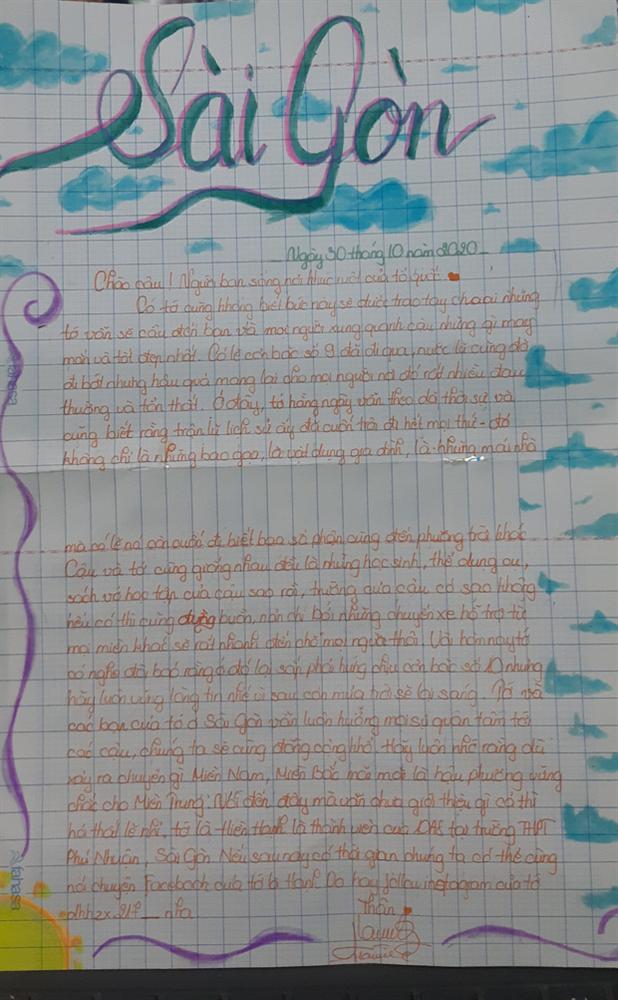 Sài Gòn
Ngày 30 tháng 10 năm 2020
Chào cậu! Người bạn sống nơi khúc ruột của tổ quốc
Có tớ cũng không biết bức này sẽ được trao tay cho ai nhưng
tớ vẫn sẽ cầu đến bạn và mọi người xung quanh cậu những gì may
mắn và tốt đẹp nhất. Có lẽ cơn bão số 9 đã đi qua, nước lũ cũng đã
đi bớt nhưng hậu quả mang lại cho mọi người nó đó rất nhiều đau
thương và tổn thất. Ở đây, tớ hằng ngày vẫn theo dõi thời sự và
cũng biết rằng trận lũ lịch sử ấy đã cuốn trôi đi hết mọi thứ - đó
không chỉ là những bao gạo, là vật dụng gia đình, là những mái nhà
mà có lẽ nó còn cuốn đi biết bao số phận cùng đến phương trời khác
Cậu và tớ cũng giống nhau đều là những học sinh, thế dụng cụ,
sách vở học tập của cậu sao rồi, trường của cậu có sao không
nếu có thì cũng đừng buồn, nản chí bởi những chuyến xe hỗ trợ từ
mọi miền khác sẽ rất nhanh đến chỗ mọi người thôi. Và hôm nay tớ
có nghe đài báo rằng ở đó lại sắp phải hứng chịu cơn bão số 10 nhưng
hãy luôn vững lòng tin nhé vì sau cơn mưa trời sẽ lại sáng. Tớ và
các bạn của tớ ở Sài Gòn vẫn luôn hướng mọi sự quan tâm tới
các cậu, chúng ta sẽ cùng đồng cộng khổ. Hãy luôn nhớ rằng dù
xảy ra chuyện gì Miền Nam, Miền Bắc mãi mãi là hậu phương vững
chắc cho Miền Trung. Nói đến đây mà vẫn chưa giới thiệu gì có thì
há thất lễ nhỉ, tớ là thiên thanh là thành viên của tại trường THPT
Phú Nhuận, Sài Gòn. Nếu sau này có thời gian chúng ta có thể cùng
nói chuyện Facebook của tớ là hay follow instagram của tớ
nha
Thân
tahasa
tahasa